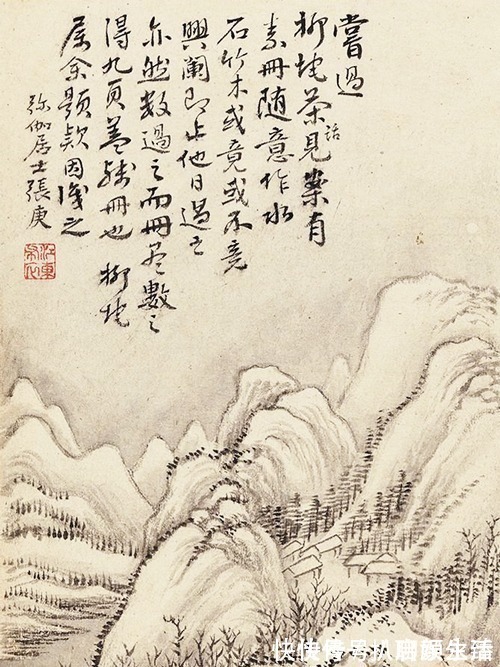 嘗過
柳坨茶話見案有
素冊随意作水
石竹木或竟或不竟
興闌即止他日過之
亦然數過之而冊尽數之
得九頁蓋殘冊也 柳坨
属余題款因識之
弥伽居士張庚